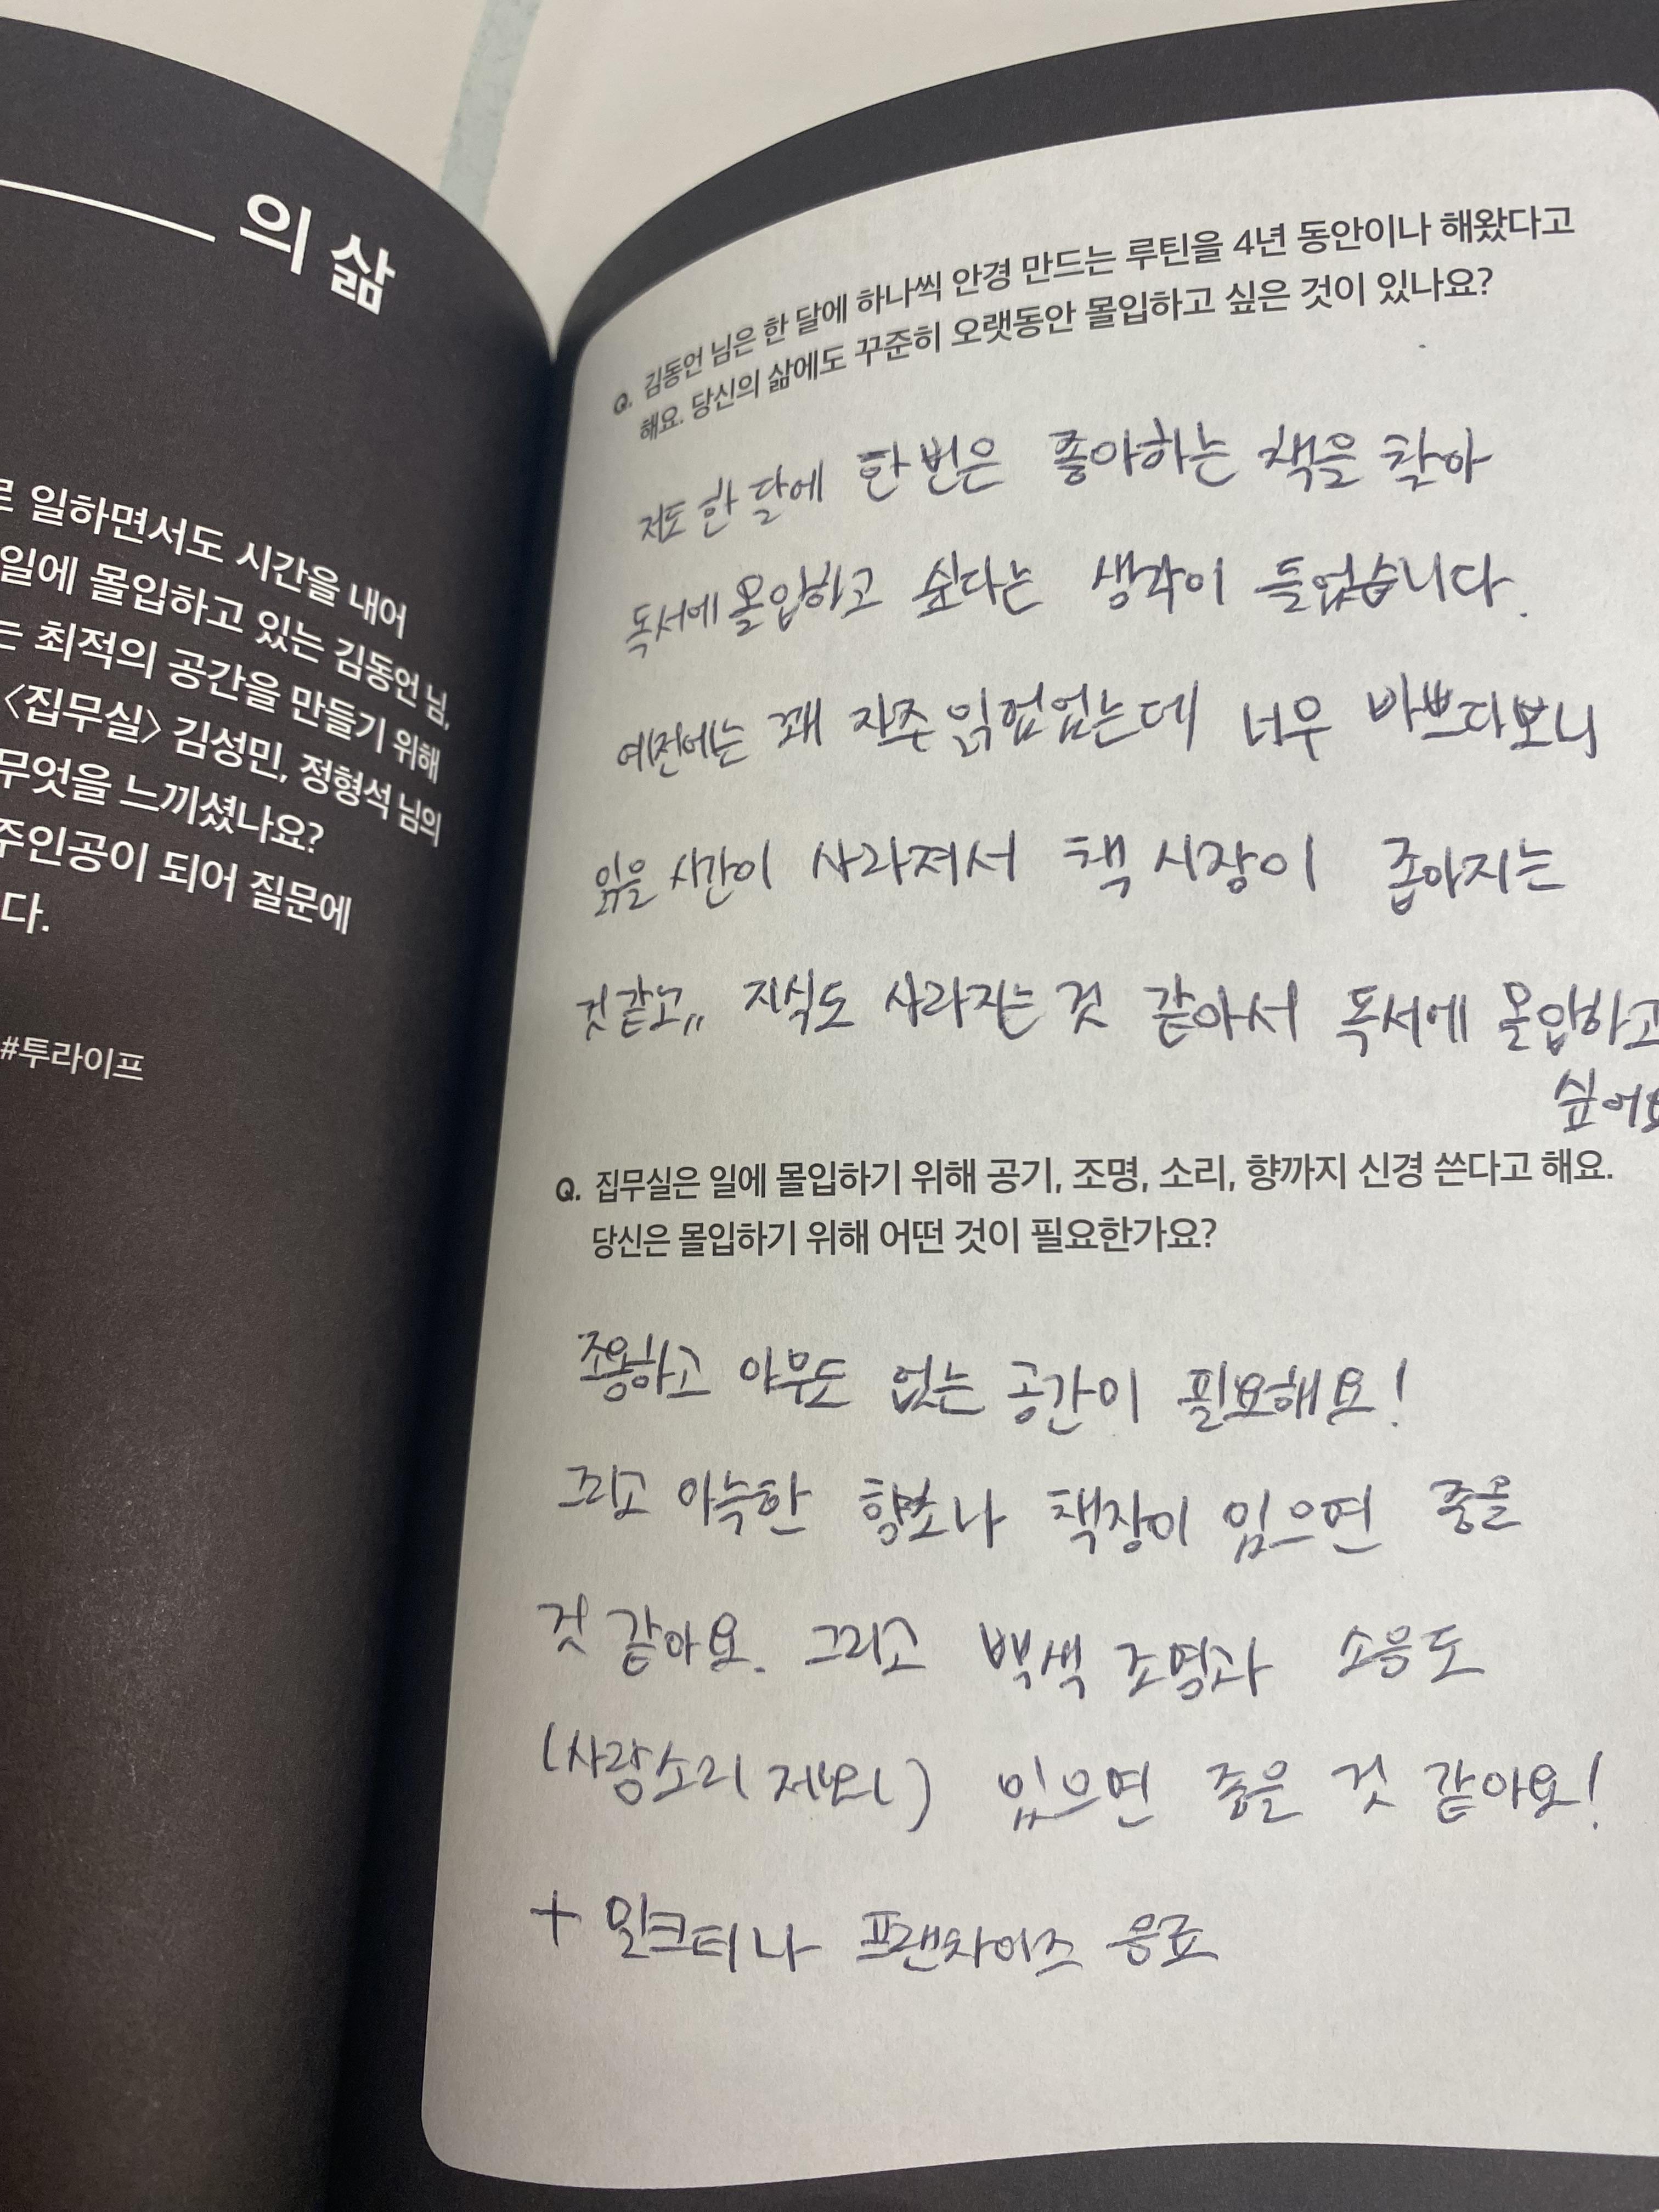 의 삶
로 일하면서도 시간을 내어
일에 몰입하고 있는 김동언 님,
는 최적의 공간을 만들기 위해
<집무실> 김성민, 정형석 님의
무엇을 느끼셨나요?
주인공이 되어 질문에
다.
#투라이프
Q. 김동언 님은 한 달에 하나씩 안경 만드는 루틴을 4년 동안이나 해왔다고
해요. 당신의 삶에도 꾸준히 오랫동안 몰입하고 싶은 것이 있나요?
저도 한 달에 한번은 좋아하는 책을 찾아
독서에 몰입하고 싶다는 생각이 들었습니다.
예전에는 꽤 자주 읽었는데 너무 바쁘다보니
읽을 시간이 사라져서 책 시장이 좁아지는
것 같고,, 지식도 사라지는 것 같아서 독서에 몰입하고
싶어요
Q. 집무실은 일에 몰입하기 위해 공기, 조명, 소리, 향까지 신경 쓴다고 해요.
당신은 몰입하기 위해 어떤 것이 필요한가요?
조용하고 아무도 없는 공간이 필요해요!
그리고 아늑한 향초나 책장이 있으면 좋을
것 같아요. 그리고 백색 조명과 소음도
(사람소리 제외) 있으면 좋을 것 같아요!
+ 밀크티나 프랜차이즈 음료